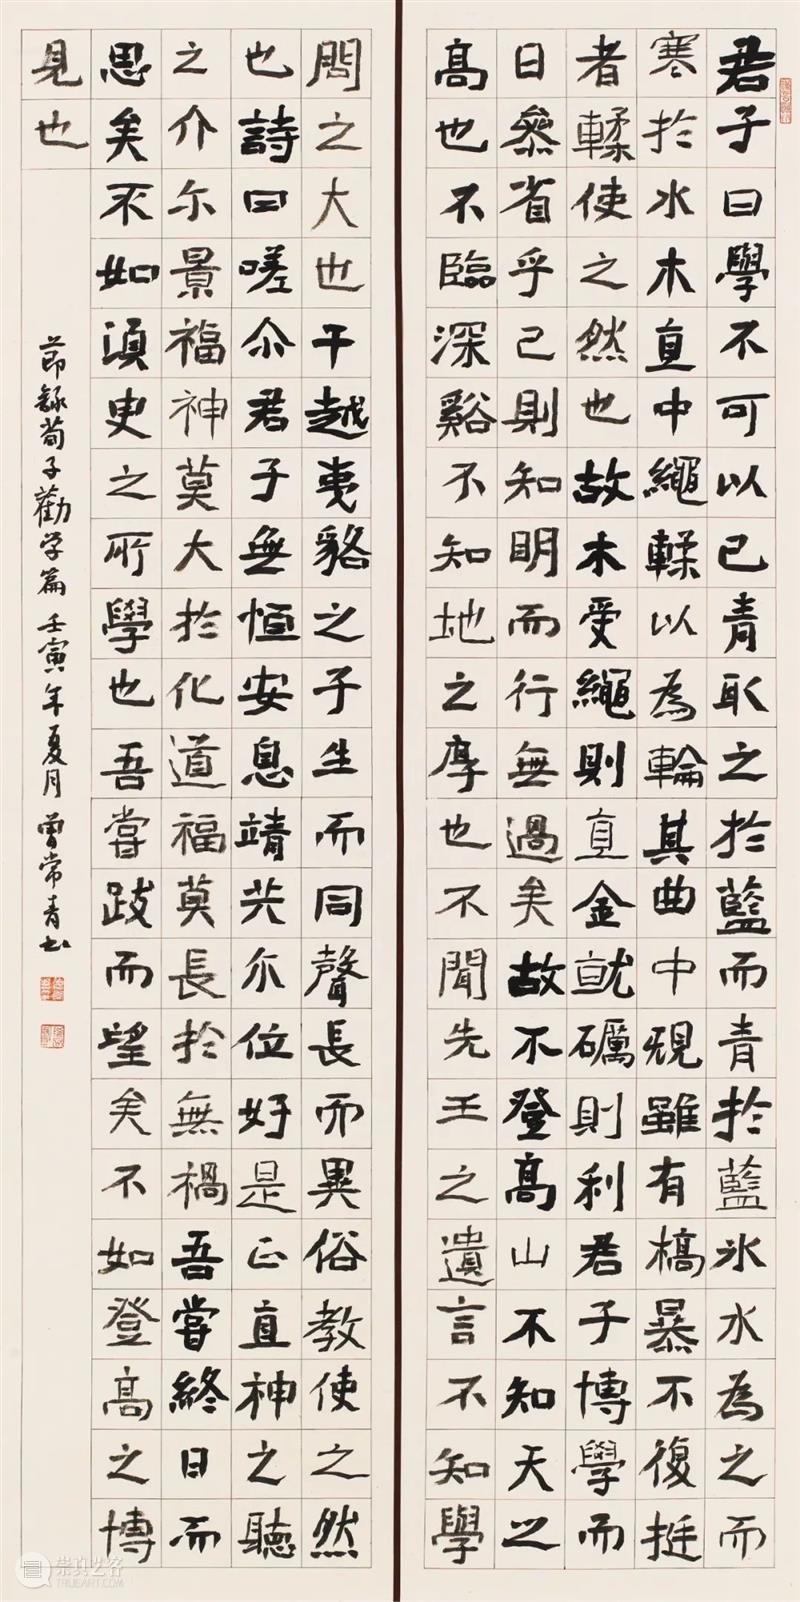 君子曰學不可以已青取之於藍而青於藍冰水為之而
寒於水木直中繩輮以為輪其曲中規雖有槁暴不復挺
者輮使之然也故木受繩則直金就礪則利君子博學而
日參省乎己則知明而行無過矣故不登高山不知天之
高也不臨深谿不知地之厚也不聞先王之遺言不知學
問之大也干越夷貉之子生而同聲長而異俗教使之然
也詩曰嗟尒君子無恒安息靖共尔位好是正直神之聽
之介尔景福神莫大於化道福莫長於無禍吾嘗終日而
思矣不如須臾之所學也吾嘗跂而望矣不如登高之博
見也
節錄荀子勸学篇 壬寅年夏月 曾常青书
崇真艺客
TRUEART.COM